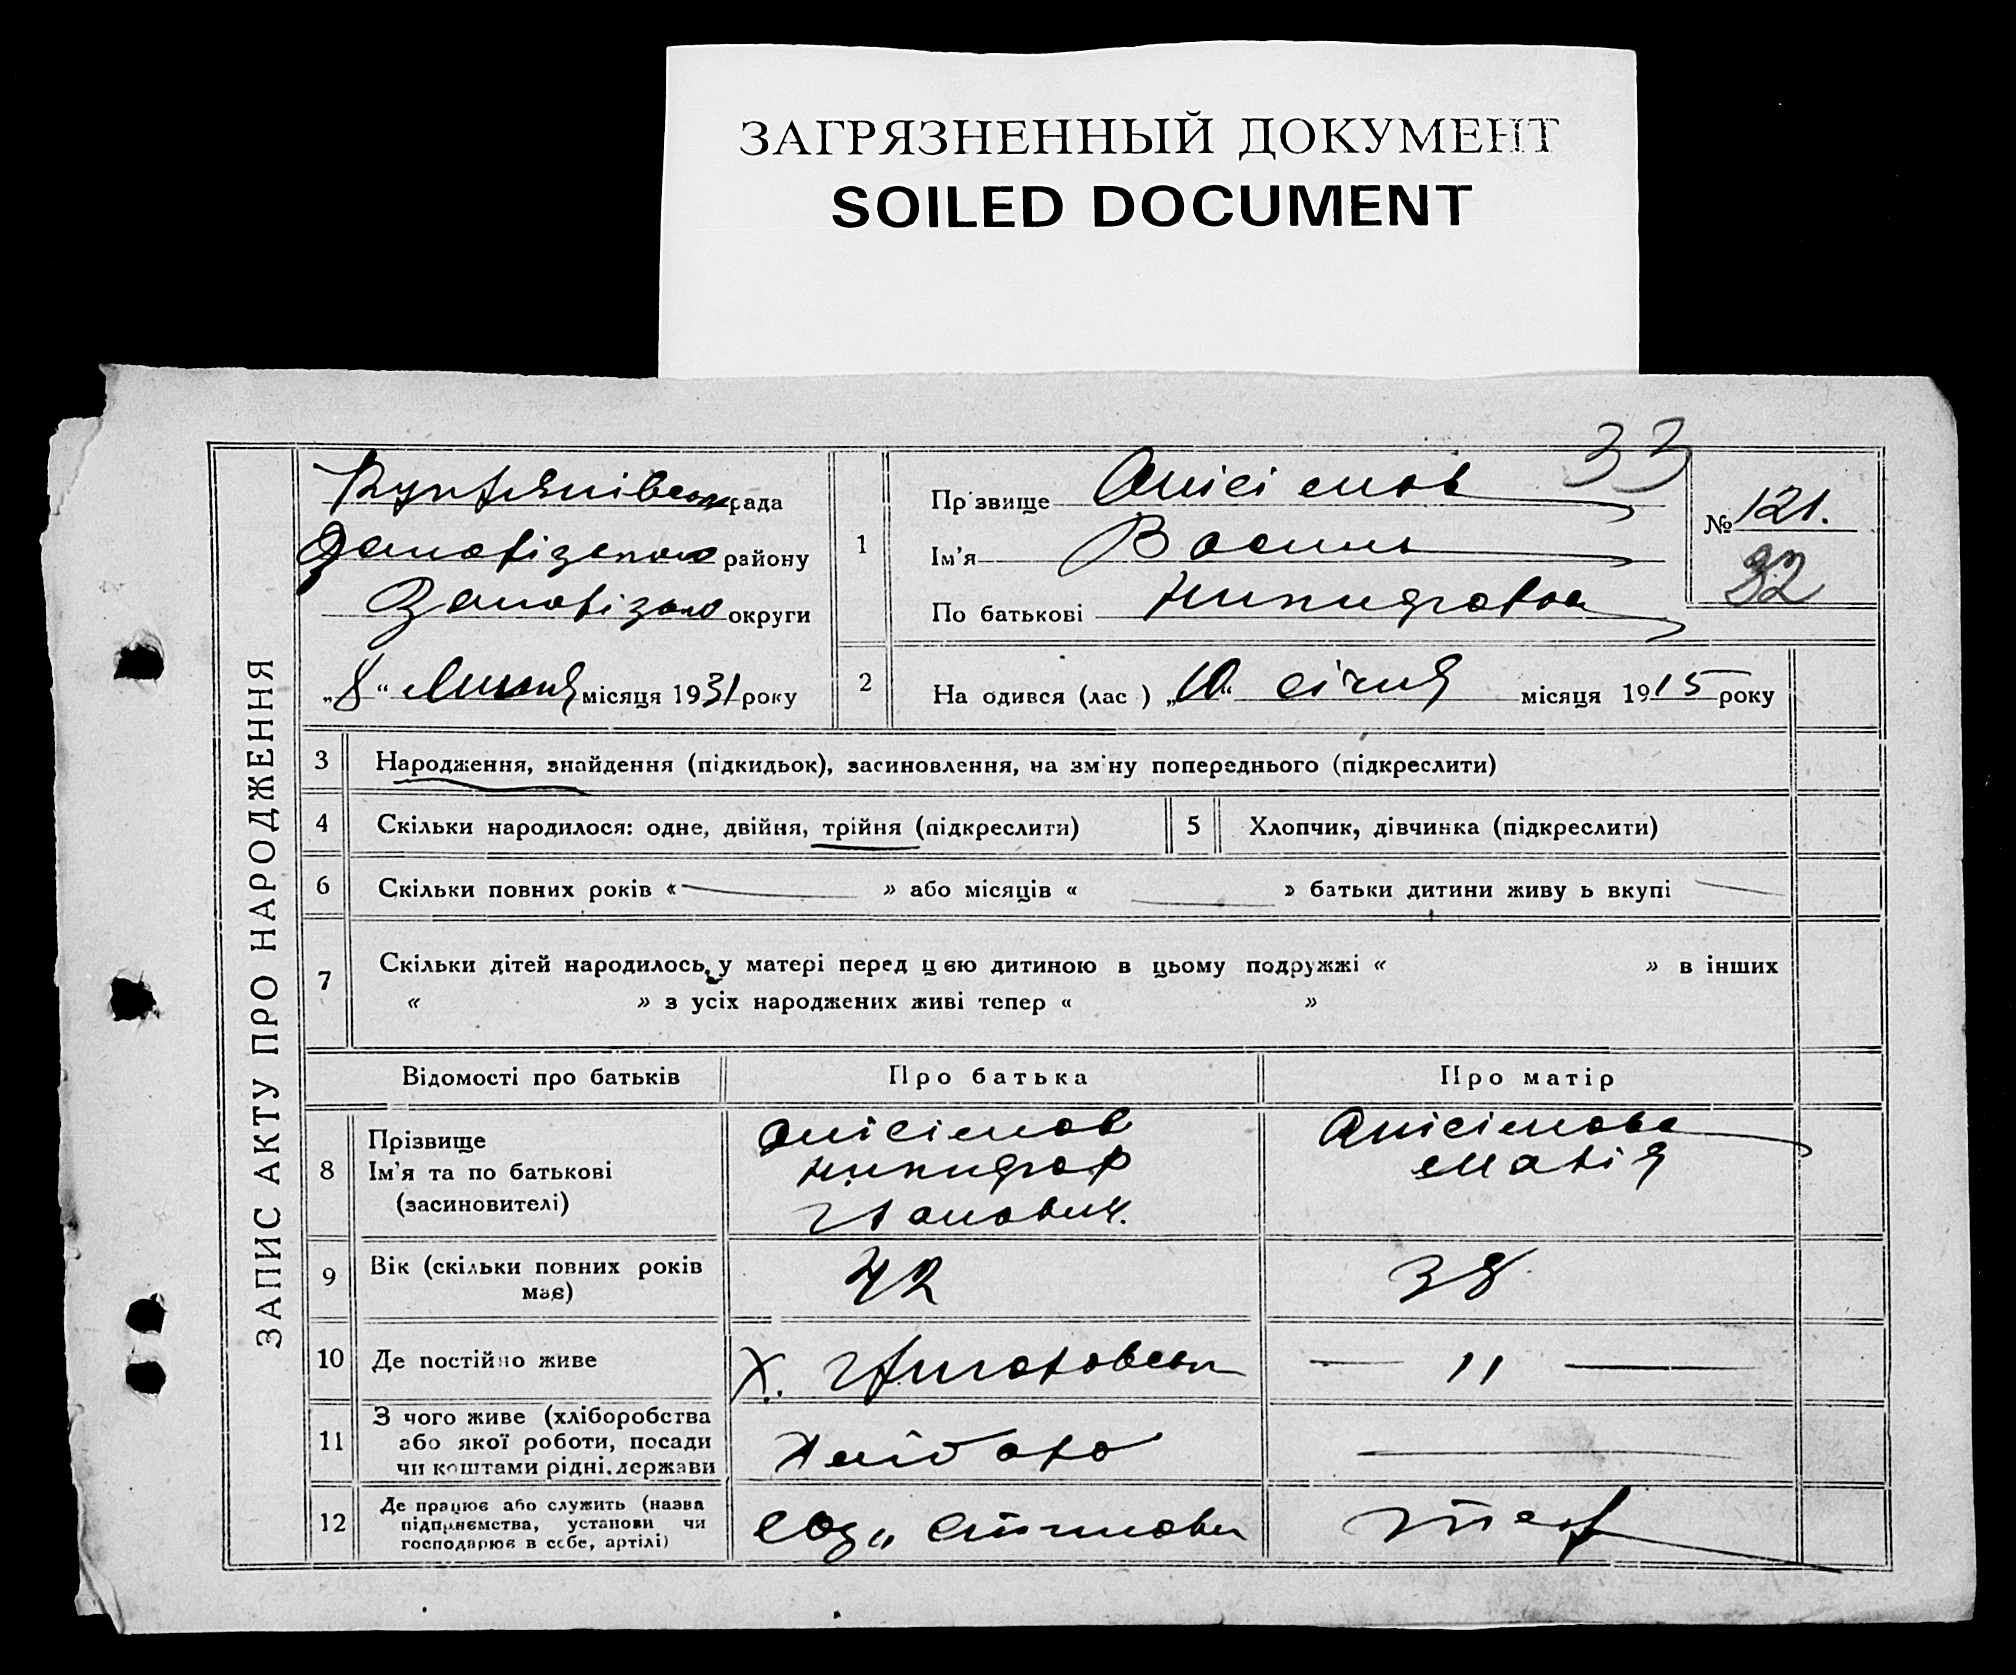 ЗАГРЯЗНЕННЫЙ ДОКУМЕНТ
SOILED DOCUMENT
33
рада
району
округи
„8“ Липня місяця 1931 року
1
Прізвище Анісімов
Ім'я Василь
По батькові
№ 121.
32
2
На одився (лас ) „10“ січня місяця 1915 року
ЗАПИС АКТУ ПРО НАРОДЖЕННЯ
3 Народження, знайдення (підкидьок), засиновлення, на зм'ну попереднього (підкреслити)
4 Скільки народилося: одне, двійня, трійня (підкреслити)
5 Хлопчик, дівчинка (підкреслити)
6 Скільки повних років « » або місяців « » батьки дитини живу ь вкупі
7 Скільки дітей народилось у матері перед цією дитиною в цьому подружжі « » в інших
« » з усіх народжених живі тепер « »
Відомості про батьків Про батька Про матір
8 Прізвище
Ім'я та по батькові
(засиновителі)
Анісімов
Іванович.
Анісімова
Марія
9 Вік (скільки повних років
має)
42
38
10 Де постійно живе
х.
— 〃 —
11 З чого живе (хліборобства
або якої роботи, посади
чи коштами рідні, держави
12 Де працює або служить (назва
підприємства, установи чи
господарює в себе, артілі)